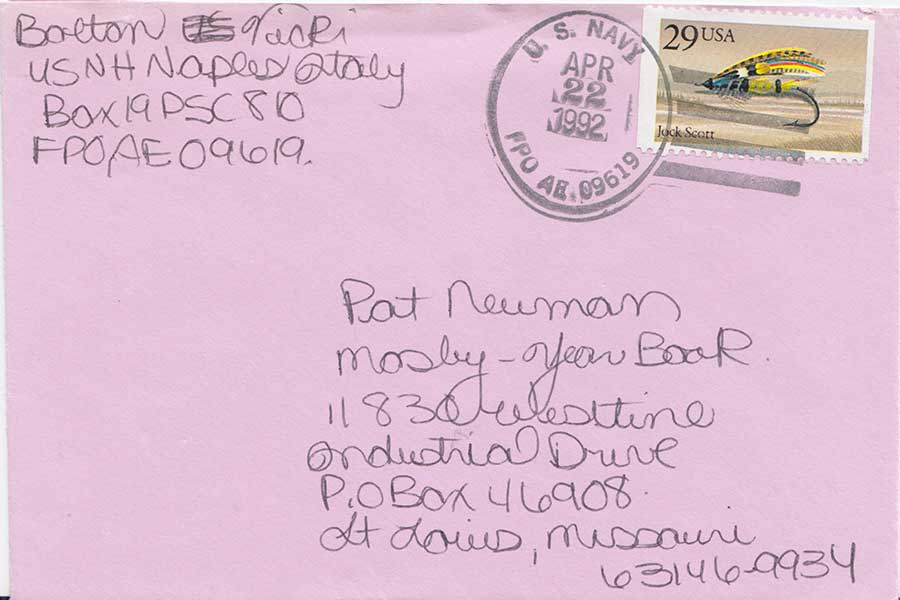 Bolton Vicki
USNH Naples Italy
Box 19 PSC 810
FPO, AE 09619.
U. S. NAVY
APR
22
1992
FPO AE. 09619
29 USA
Jock Scott
Pat Newman
Mosby-Year Book.
11830 Westline
Industrial Drive
P.O Box 46908
St Louis, Missouri
63146-9934